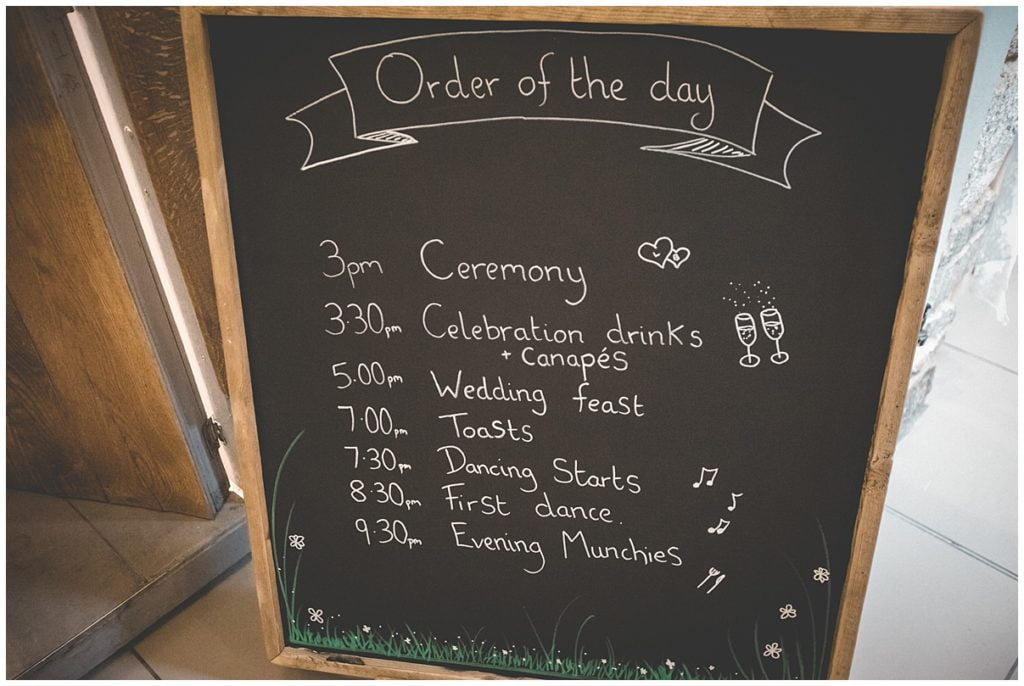 Order of the day
3pm Ceremony
3.30pm Celebration drinks
+ Canapés
5.00pm Wedding feast
7.00pm Toasts
7.30pm Dancing Starts
8.30pm First dance.
9.30pm Evening Munchies